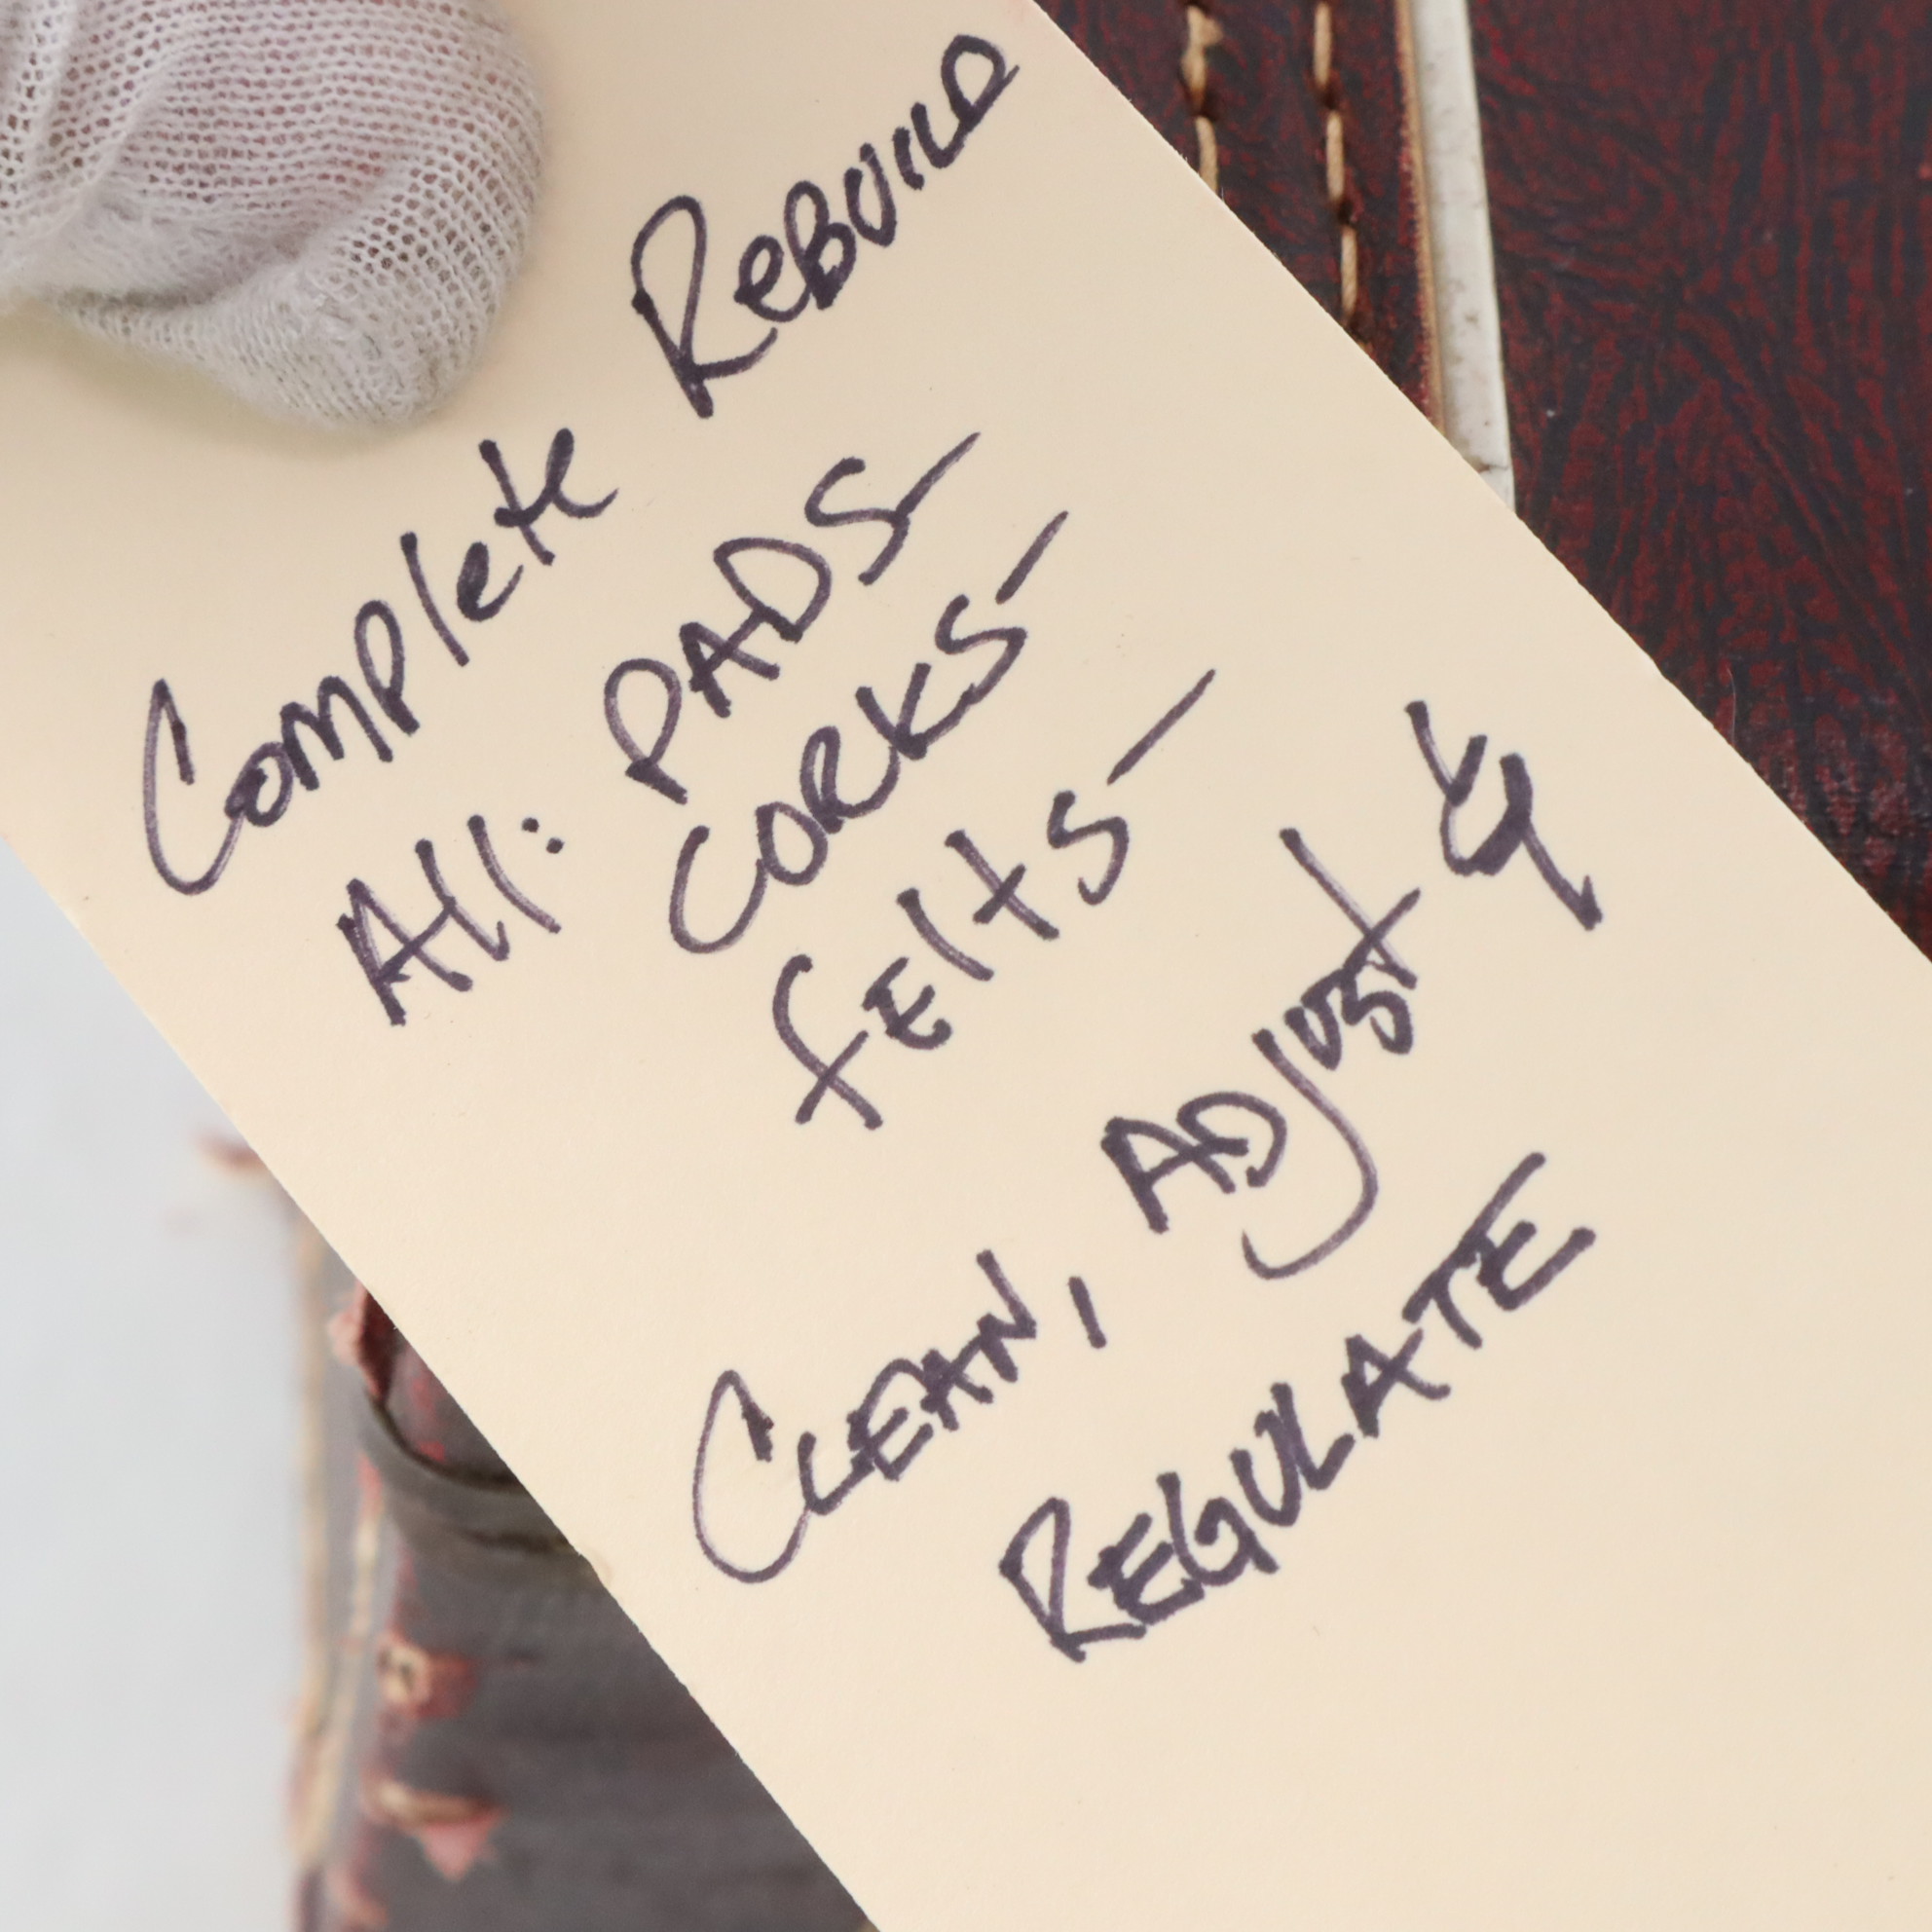 Complete Rebuild
All: PADS-
CORKS-
FElts-
CLEAN, ADJust &
REGULATE